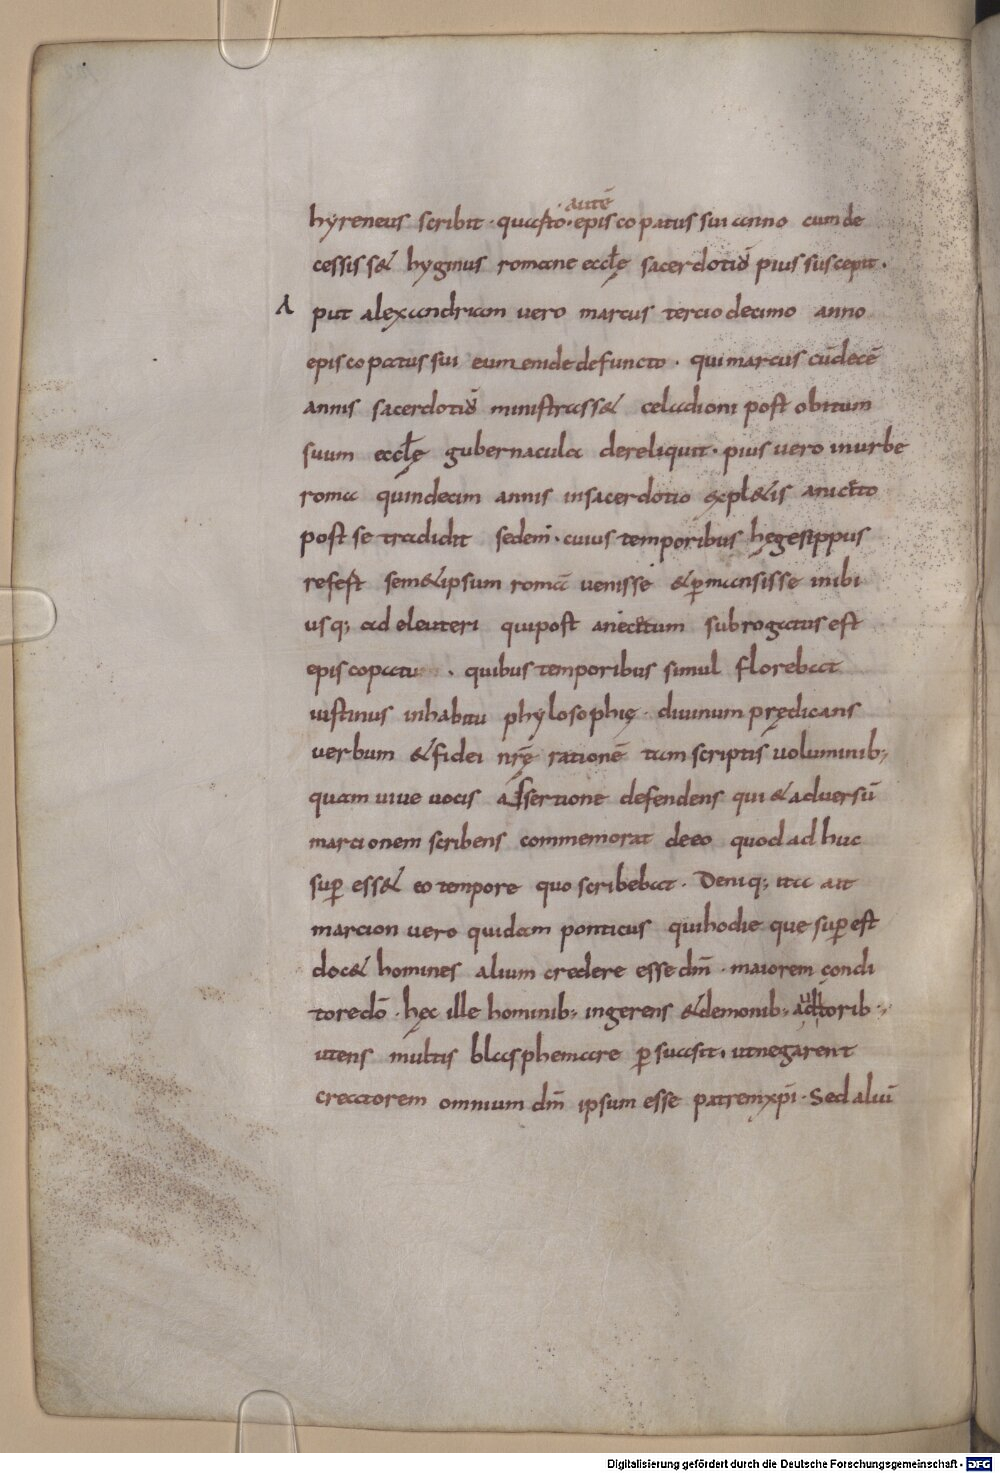 autē
hyreneus scribit · quarto · episcopatus sui anno cum de
cessiss& hyginus romane eccłę sacerdotiū pius suscepit .
A put alexandriam vero marcus tercio decimo anno
episcopatus sui eumenide defuncto . qui marcus cū decē
annis sacerdotiū ministrass& celadioni post obitum
suum eccłę gubernacula dereliquit · pius vero in urbe
roma quindecim annis in sacerdotio expl&is
post se tradidit sedem · cuius temporibus hęgesippus
refest sem&ipsum romā venisse &p̄mansisse inibi
usq; ad eleuteri qui post subrogatus est
episcopatu . quibus temporibus simul florebat
iustinus in habitu phylosophię · divinum prędicans
verbum &fidei nr̄ę rationē tam scriptis voluminib;
quam vive vocis assertione defendens qui &adversū
marcionem scribens commemorat de eo quod ad huc
sup̄ ess& eo tempore quo scribebat . Deniq; ita ait
marcion vero quidam ponticus qui hodie que sup̄ est
doc& homines alium credere esse dm̄ · maiorem condi
tore dō · hęc ille hominib; ingerens &demonib;
utens multis blasphemare p̄suasit . ut negarent
creatorem omnium dm̄ ipsum esse patrem xpī · Sed aliū
Digitalisierung gefördert durch die Deutsche Forschungsgemeinschaft - DFG